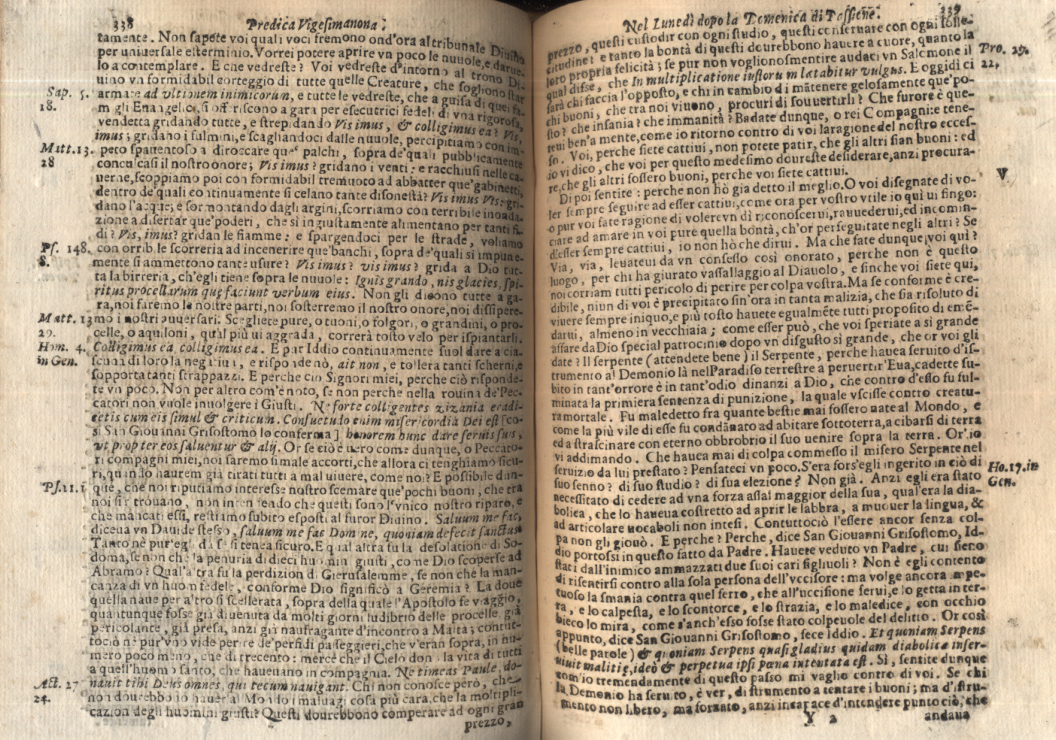 338 Predica Vigesimanona.
tamente. Non sapete voi quali voci fremono ond'ora al tribunale Diuino
per uniuersale esterminio. Vorrei potere aprire vn poco le nuuole, e daruelo
lo a contemplare. E che vedreste? Voi vedreste d'intorno al trono Di-
uino vn formidabil corteggio di tutte quelle Creature, che sogliono star
Sap. 5. armate ad vltionem inimicorum, e tutte le vedreste, che a guisa di que' fa-
18. migli Euangelici, si offeriscono a gara per esecutrici fedeli di vna rigorosa
vendetta gridando tutte, e strepitando Vis imus, & colligimus ea? Vis
imus; gridano i fulmini, e scagliandoci dalle nuuole, percipitiamo con im-
Matt.13. peto spauentoso a diroccare que' palchi, sopra de' quali pubblicamente
28 conculcasi il nostro onore; Vis imus? gridano i venti: e racchiusi nelle ca-
uerne, scoppiamo poi con formidabil tremuoto ad abbatter que' gabinetti,
dentro de' quali continuamente si celano tante disonestà? Vis imus Vis: gri-
dano l'acque; e sormontando dagli argini, scorriamo con terribile inonda-
zione a disertar que' poderi, che sì ingiustamente alimentano per tanti
di? Vis, imus? gridan le fiamme; e spargendoci per le strade, voliamo
Ps. 148. con orribile scorreria ad incenerire que' banchi, sopra de' quali sì impune-
8. mente si ammettono tante usure? Vis imus? vis imus? grida a Dio tut-
ta la birreria, ch'egli tiene sopra le nuuole: Ignis grando, nis glacies, spi-
ritus procellarum quę faciunt verbum eius. Non gli dicono tutte a ga-
ra, noi faremo le nostre parti, noi sosterremo il nostro onore, noi disspere-
Matt. 13 mo i nostri auuersari: Scegliete pure, o tuoni, o folgori, o grandini, o pro-
29. celle, o aquiloni, qual più ui aggrada, correrà tosto velo per ispiantarli.
Hom. 4. Colligimus ea, colligimus ea. E pur Iddio continuamente suol dare a cia-
in Gen. scuna di loro la negatiua, e rispondendo, ait non, e tollera tanti scherni, e
sopporta tanti strapazzi. E perche ciò Signori miei, perche ciò risponde-
te vn poco. Non per altro com'è noto, se non perche nella rouina de' Pec-
catori non vuole inuolgere i Giusti. Ne forte colligentes zizania eradi-
cetis cum eis simul & triticum. Consuetudo enim misericordia Dei est (co-
sì San Giouanni Grisostomo lo conferma) honorem hunc dare seruis suis,
vt propter eos saluentur & alij. Or se ciò è uero come dunque, o Peccato-
ri compagni miei, noi saremo sì male accorti, che allora ci tenghiamo sicu-
ri, quando hauerem già tirati tutti a mal uiuere, come noi? E possibile dun-
Ps. 11. 1 que, che noi riputiamo interesse nostro scemare que' pochi buoni, che tra
noi si trouano, non intendendo che questi sono l'vnico nostro riparo, e
che mancati essi, restiamo subito esposti al furor Diuino. Saluum me fac,
diceua vn Dauide stesso, saluum me fac Domine, quoniam defecit sanctus
Tanto nè pur'egli da sè si tenea sicuro. E qual altra fu la desolatione di So-
doma, se non che la penuria di dieci huomini giusti, come Dio scoperse ad
Abramo? Qual'altra fu la perdizion di Gierusalemme, se non che la man-
canza di vn huom fedele, conforme Dio significò a Geremia? La doue
quella naue per altro sì scellerata, sopra della quale l'Apostolo fe viaggio,
quantunque fosse già diuenuta da molti giorni ludibrio delle procelle già
pericolante, già presa, anzi già naufragante d'incontro a Malta; contut-
tociò nè pur'vno vide perire de' perfidi passeggieri, che v'eran sopra, in nu-
mero poco meno, che di trecento: mercè che il Cielo donò la vita di tutti
a quell'huom santo, che haueuano in compagnia. Ne timeas Paule, do-
Act. 27 nauit tibi Deus omnes, qui tecum nauigant. Chi non conosce però, che
24. non dourebbono hauer al Mondo i maluagi cosa più cara, che la moltipli-
cazion degli huomini giusti? Questi dourebbono comperare ad ogni gran
prezzo,
Nel Lunedì dopo la Domenica di Passione. 339
prezzo, questi custodir con ogni studio, questi conseruare con ogni solle-
citudine: e tanto la bontà di questi dourebbono hauere a cuore, quanto la Pro. 29.
loro propria felicità; se pur non vogliono smentire audaci vn Salomone il 22.
qual disse, che In multiplicatione iustorum lætabitur vulgus. E oggidì ci
sarà chi faccia l'opposto, e chi in cambio di mātenere gelosamente que' po-
chi buoni, che tra noi viuono, procuri di souuertirli? Che furore è que-
sto? che insania? che immanità? Badate dunque, o rei Compagni e tene-
teui ben'a mente, come io ritorno contro di voi la ragione del nostro ecces-
so. Voi, perche siete cattiui, non potete patir, che gli altri sian buoni: ed
io vi dico, che voi per questo medesimo doureste desiderare, anzi procura- V
re, che gli altri fossero buoni, perche voi siete cattiui.
Di poi sentite: perche non hò già detto il meglio. O voi disegnate di vo-
ler sempre seguire ad esser cattiui, come ora per vostro vtile io qui ui fingo:
o pur voi fate ragione di volerevn dì riconoscerui, rauuederui, ed incomin-
ciare ad amare in voi pure quella bontà, ch'or perseguitate negli altri? Se
d'esser sempre cattiui, io non hò che dirui. Ma che fate dunque, voi quì?
Via, via, leuateui da vn consesso così onorato, perche non è questo
luogo, per chi ha giurato vassallaggio al Diauolo, e finche voi siete qui,
noi corriam tutti pericolo di perire per colpa vostra. Ma se conforme è cre-
dibile, niun di voi è precipitato sin'ora in tanta malizia, che sia risoluto di
viuere sempre iniquo, e più tosto hauete egualmēte tutti proposito di emē-
darui, almeno in vecchiaia; come esser può, che voi speriate a sì grande
affare da Dio special patrocinio dopo vn disgusto sì grande, che or voi gli
date? Il Serpente (attendete bene) il Serpente, perche hauea seruito d'is-
trumento al Demonio là nel Paradiso terrestre a peruertir' Eua, cadette su-
bito in tant'orrore è in tant'odio dinanzi a Dio, che contro d'esso fu ful-
minata la primiera sentenza di punizione, la quale vscisse contro creatu-
ra mortale. Fu maledetto fra quante bestie mai fossero nate al Mondo, e
come la più vile di esse fu condānato ad abitare sottoterra, a cibarsi di terra
ed a strascinare con eterno obbrobrio il suo uentre sopra la terra. Or'io
vi addimando. Che hauea mai di colpa commesso il misero Serpente nel
seruizio da lui prestato? Pensateci vn poco. S'era fors'egli ingerito in ciò di Ho.17.in
suo senno? di suo studio? di sua elezione? Non già. Anzi egli era stato Gen.
necessitato di cedere ad vna forza assai maggior della sua, qual'era la dia-
bolica, che lo haueua costretto ad aprir le labbra, a muouer la lingua, &
ad articolare uocaboli non intesi. Contuttociò l'essere ancor senza col-
pa non gli giouò. E perche? Perche, dice San Giouanni Grisostomo, Id-
dio portossi in questo fatto da Padre. Hauete veduto vn Padre, cui sieno
stati dall'inimico ammazzati due suoi cari figliuoli? Non è egli contento
di risentirsi contro alla sola persona dell'vccisore: ma volge ancora impe-
tuoso la smania contro quel ferro, che all'uccisione seruì, e lo getta in ter-
ra, e lo calpesta, e lo scontorce, e lo strazia, e lo maledice, con occhio
bieco lo mira, come s'anch'esso fosse stato colpeuole del delitto. Or così
appunto, dice San Giouanni Grisostomo, fece Iddio. Et quoniam Serpens
(belle parole) & quoniam Serpens quasi gladius quidam diabolica inser-
uiuit malitię, ideò & perpetua ipsi pœna intentata est. Sì, sentite dunque
com'io tremendamente di questo passo mi vaglio contro di voi. Se chi
la Demonio ha seruito, è ver, di strumento a tentare i buoni; ma d'istru-
mento non libero, ma forzato, anzi incapace d'intendere punto ciò, che
Y 2 andaua